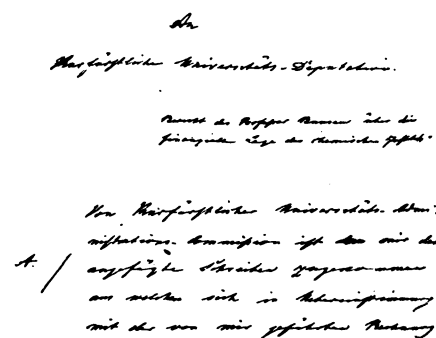 An
Kurfürstliche Universitäts-Deputation.
Bericht des Professor Bunsen über die
finanzielle Lage des chemischen
Von Kurfürstlicher Universitäts-Admi-
nistrations-Commission ist mir das
A. angefügte Schreiben zugekommen
aus welchem sich in Uebereinstimmung
mit der von mir geführten Rechnung